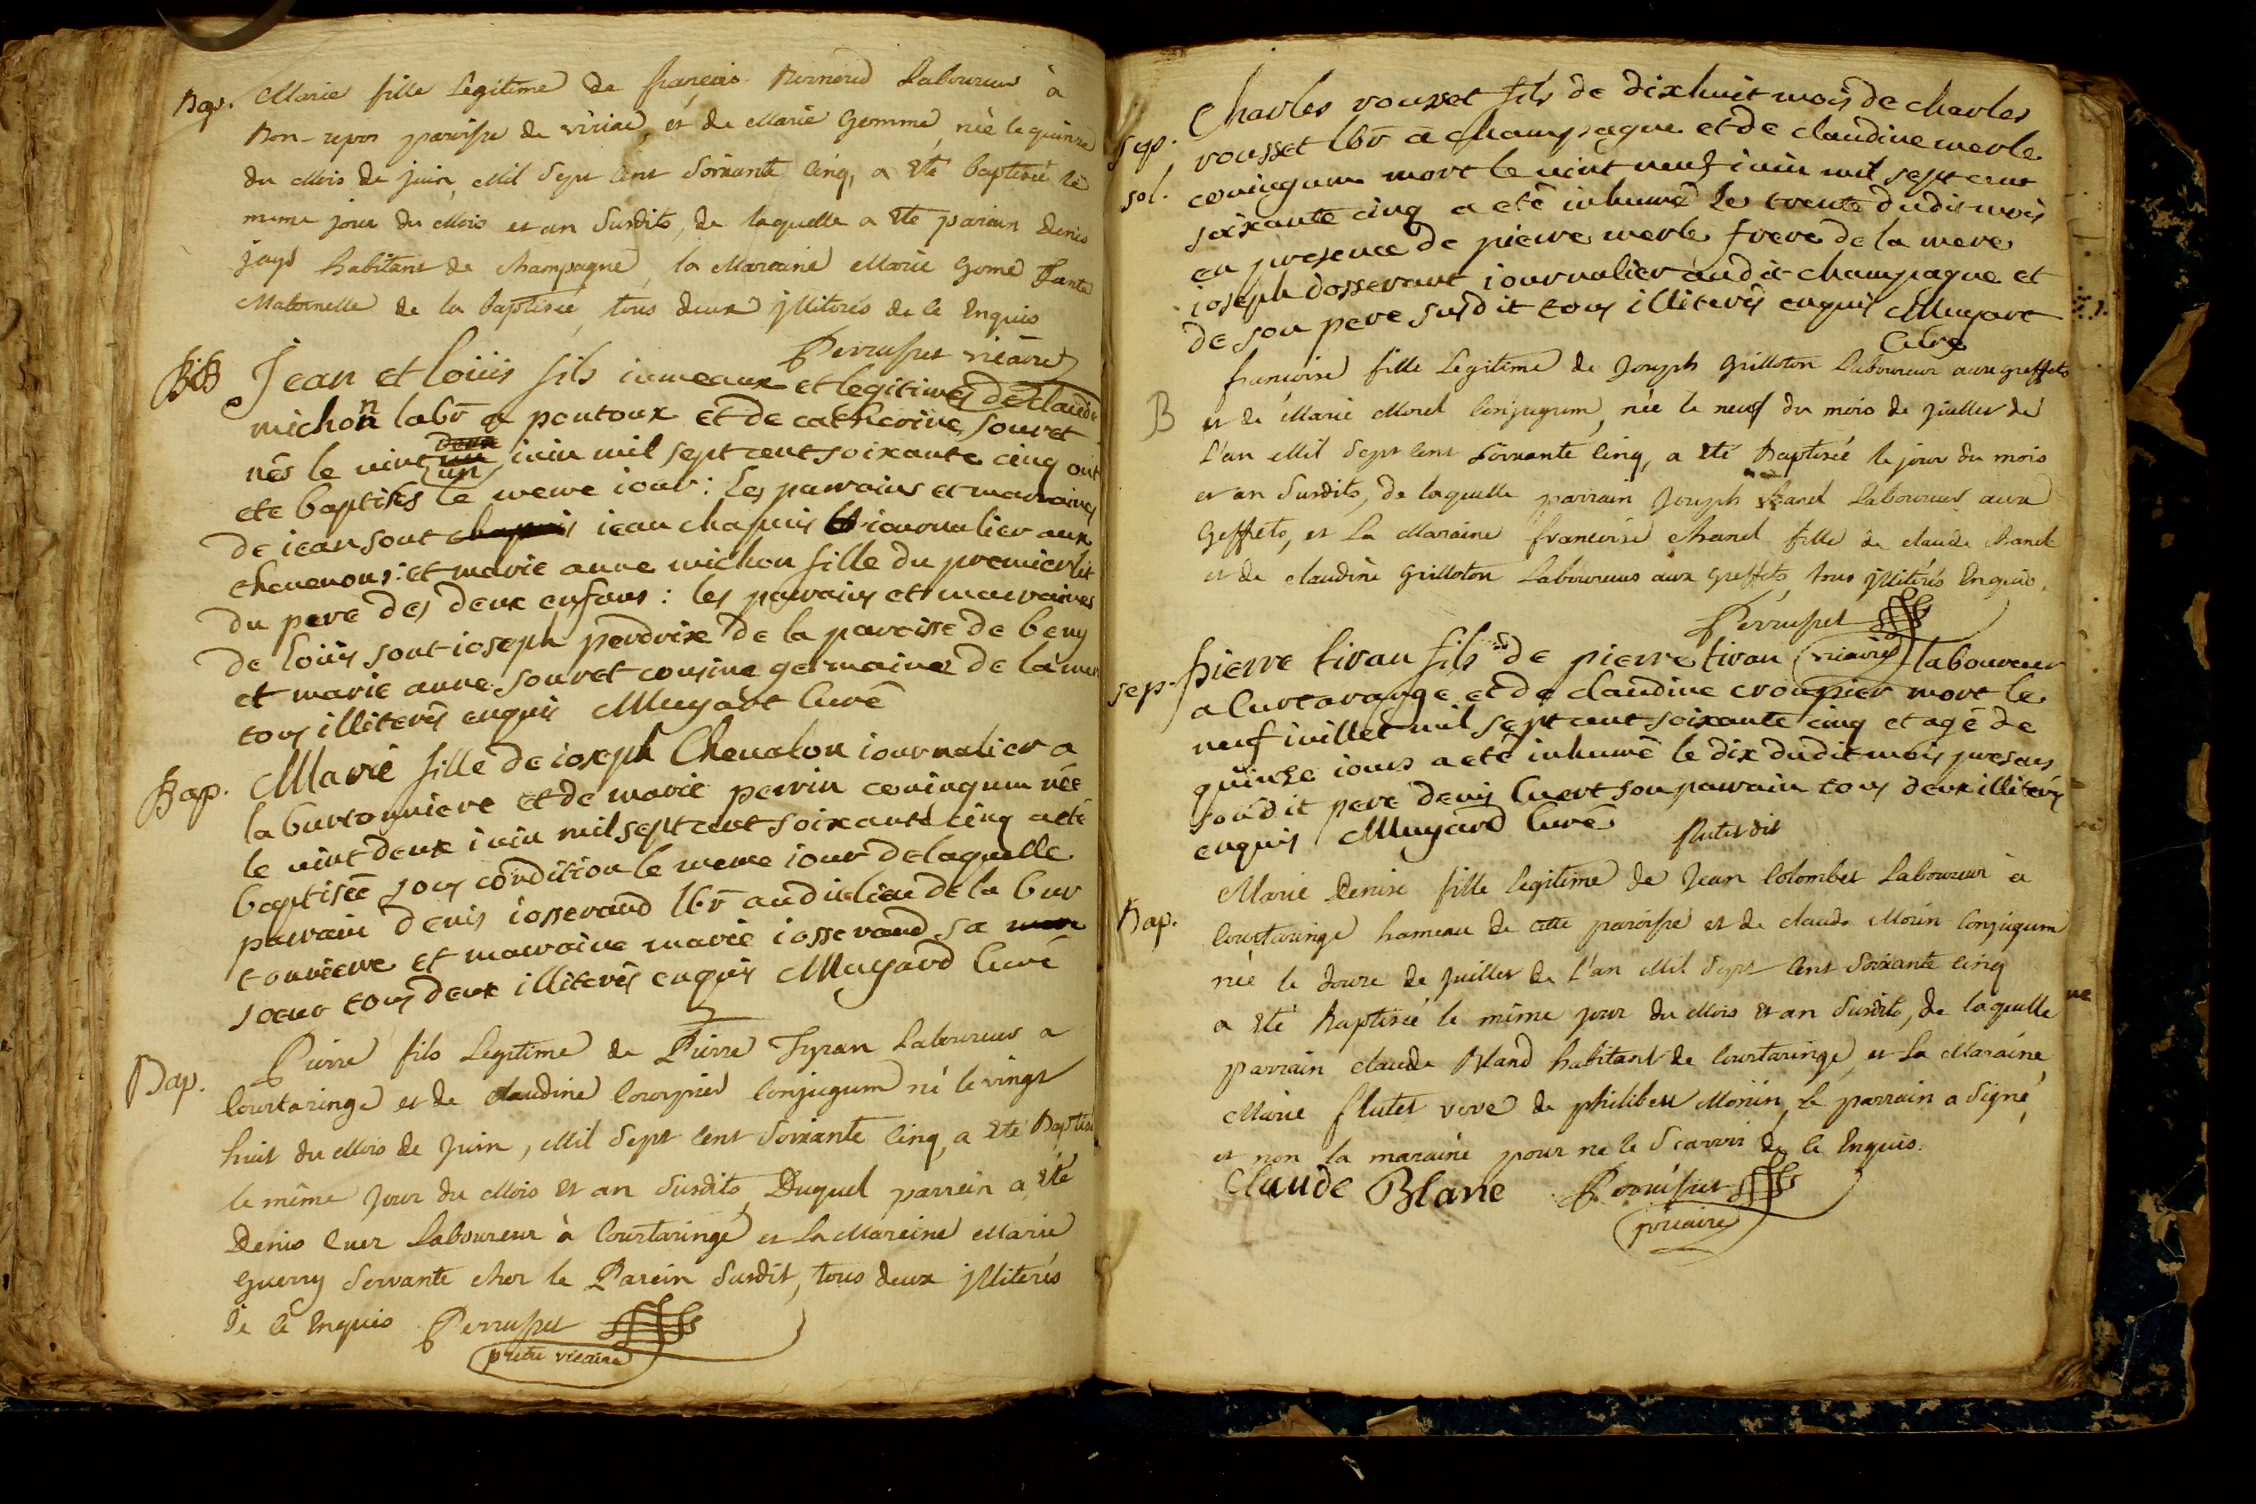 Bap. Marie fille Legitime de francois Bernerd Laboureur à
Bon-repos paroisse de viriac, et de Marie Gomme, née le quinze
du Mois de juin, Mil Sept Cent Soixante Cinq, a Eté baptisée le
meme jour du Mois et an Susdits, de laquelle a Eté parain Denis
jayd habitant de Champagne, la Maraine Marie Gome Tante
Maternelle de la baptisée, tous deux jlliterés de ce Enquis
Perrusset vicaire
B B Jean et loüis fils iumeaux et legitimes de claude
michon labr a pontoux et de catherine souret
nés le vint un iuin mil sept cent soixante cinq ont
ete baptisés le meme iour: les parrains et marraines
de iean sont iean chapuis iournalier aux
chevenons: et marie anne michon fille du premier lit
du pere des deux enfans: les parrains et marraines
de loüis sont ioseph perdrix de la paroisse de beny
et marie anne souret cousine germaine de la mere
tous illiterés enquis Muyart Curé
Bap. Marie fille de ioseph Chevalon iournalier a
la burtonniere et de marie perrin coniugum née
le vint deux iuin mil sept cent soixante cinq a eté
baptisée sous condition le meme iour de laquelle
parrain denis iosserand lbr audit lieu de la bur
tonniere et marraine marie iosserand sa
soeur tous deux illiterés enquis Muyard Curé
Bap. Pierre fils Legitime de Pierre Tyran Laboureur a
Courtaringe et de Claudine Croupier Conjugum né le vingt
huit du Mois de Juin, Mil Sept Cent Soixante Cinq, a Eté Baptisé
le même Jour du Mois et an Susdits, Duquel parrein a Eté
Denis Cuer Laboureur à Courtaringe et La Mareine Marie
Guerry Servante chez le Parein Susdit, tous deux jlliterés
de ce Enquis Perrusset
pretre vicaire
Charles rousset fils de dixhuit mois de charles
sep. rousset lbr a champagne et de claudine merle
sol. coniugum mort le vint neuf iuin mil sept cent
soixante cinq a eté inhumé le trente dudit mois
en presence de pierre merle frere de la mere
ioseph dosserant iournalier audit champagne et
de son pere susdit tous illiterés enquis Muyart
Curé
B francoise fille Legitime de Joseph Grilloton Laboureur aux greffets
et de Marie Morel Conjugum, née le neuf du mois de juillet de
L'an Mil Sept Cent Soixante Cinq, a Eté Baptisée le jour du mois
et an Susdits, de laquelle parrain Joseph Laboureur aux
Geffets, et La Maraine francoise Chanel fille de claude Chanel
et de claudine Grilloton Laboureurs aux Greffets, tous jlliterés Enquis.
Perrusset
vicaire
sep. pierre tiran fils de pierre tiran laboureur
a Curtarange et de claudine croupier mort le
neuf iuillet mil sept cent soixante cinq et agé de
quinze iours a eté inhumé le dix dudit mois presens
sondit pere denis Cuert son parrain tous deux illiterés
enquis Muyard Curé
flutet dit
Bap. Marie Denise fille legitime de Jean Colombet Laboureur à
Courtaringe hameau de cette paroisse et de claude Morin Conjugum
née le Douze de Juillet de L'an Mil Sept Cent Soixante Cinq
a Eté Baptisée le même jour du Mois Et an Susdits, de laquelle
parrain claude Bland habitant de Courtaringe, et La Maraine
Marie flutet veve de philibert Monin, Le parrain a Signé,
et non la maraine pour ne le Scavoir de ce Enquis.
Claude Blane Perrusset
prvicaire